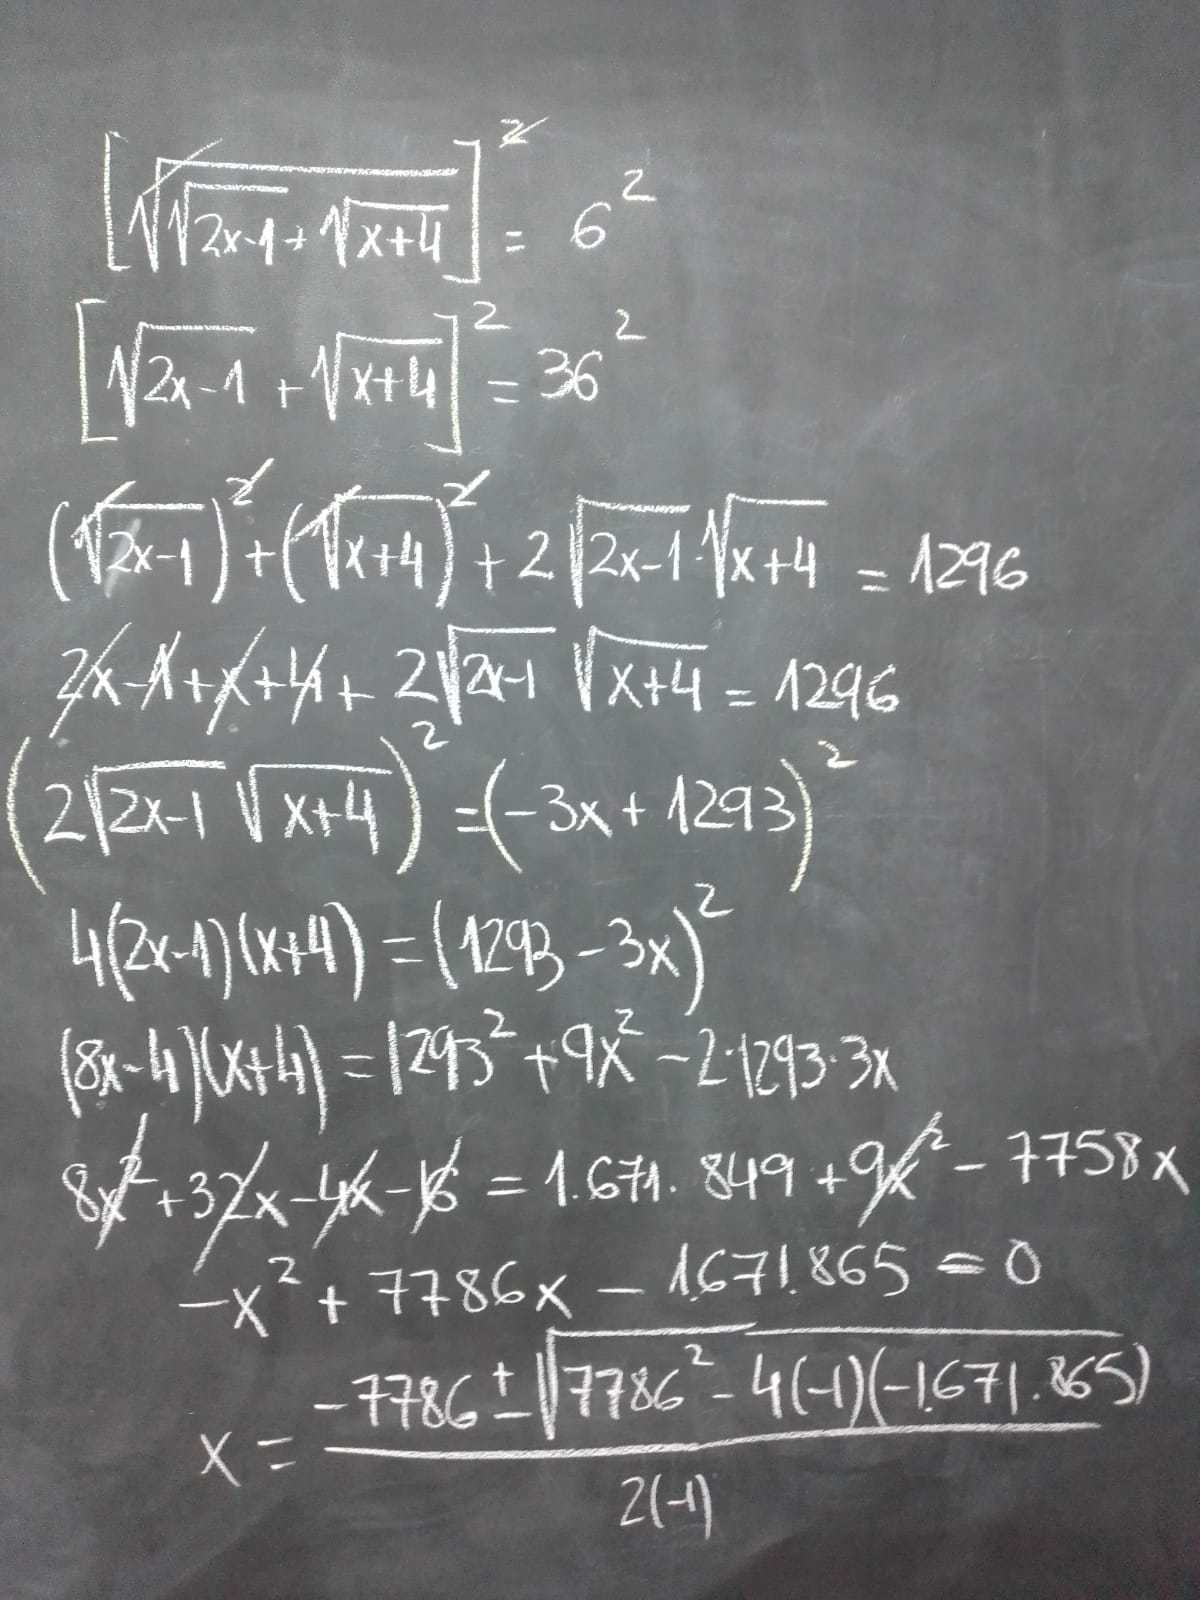 [√(√(2x-1) + √(x+4))]² = 6²
[√(2x-1) + √(x+4)]² = 36²
(√(2x-1))² + (√(x+4))² + 2√(2x-1)·√(x+4) = 1296
2x-1+x+4+ 2√(2x-1) √(x+4) = 1296
(2√(2x-1) √(x+4))² = (-3x + 1293)²
4(2x-1)(x+4) = (1293-3x)²
(8x-4)(x+4) = 1293² + 9x² - 2·1293·3x
8x² + 32x - 4x - 16 = 1.671.849 + 9x² - 7758x
-x² + 7786x - 1.671.865 = 0
x = (-7786 ± √(7786² - 4(-1)(-1.671.865))) / 2(-1)